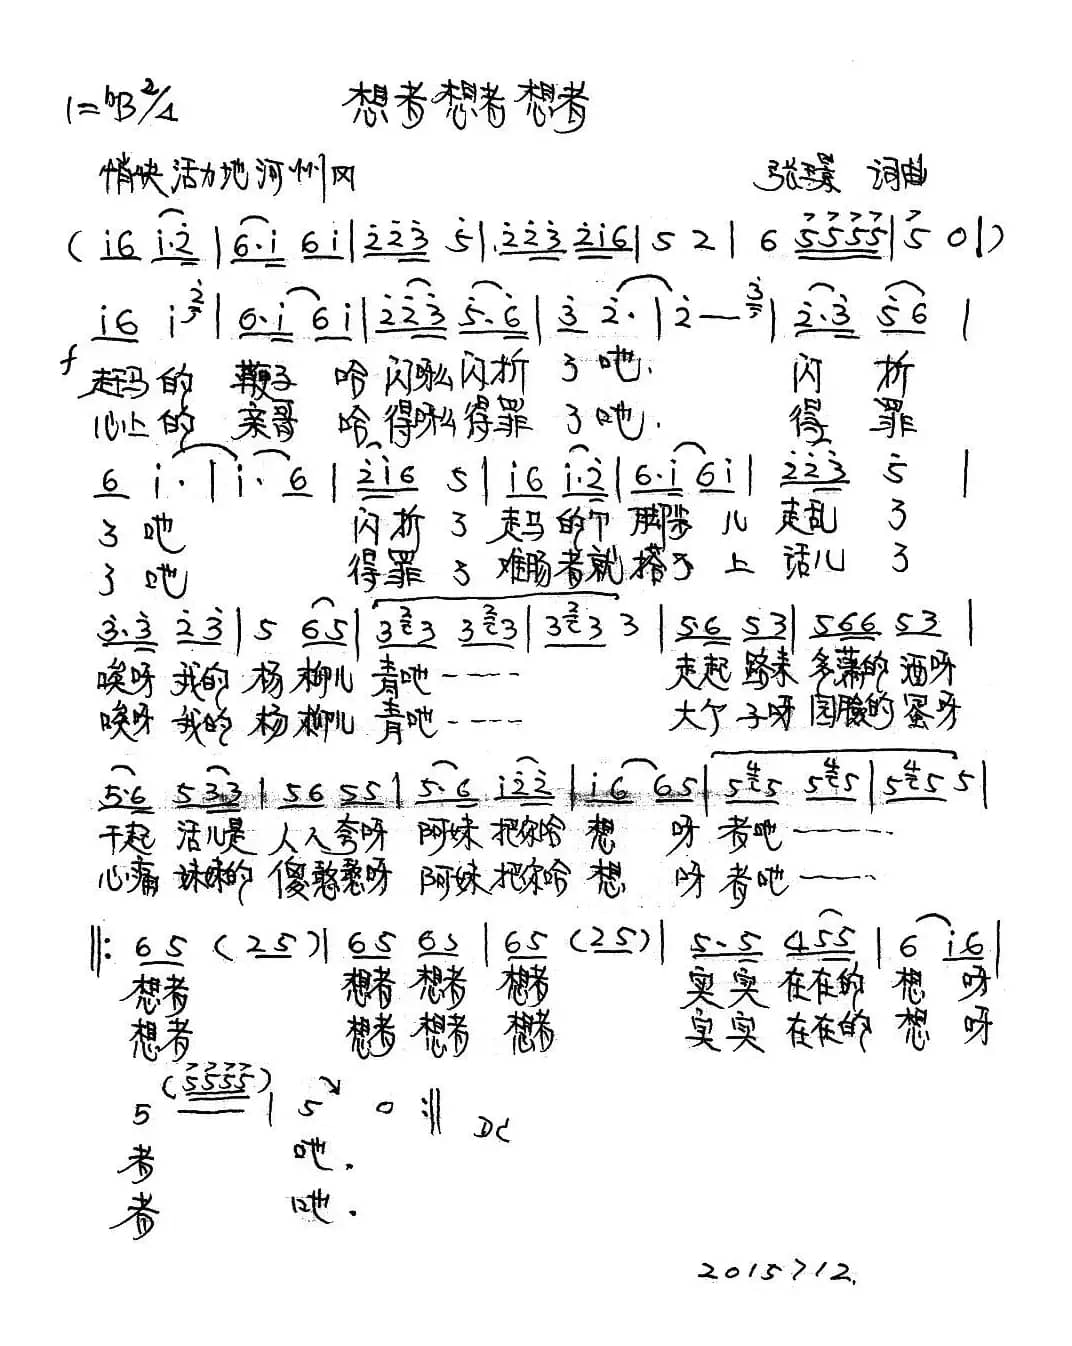 1=ᵇB 2/4 想者想者想者
情快活力地河州风 张璟 词曲
( i6 i·2 | 6·i 6i | 223 5 | 223 2i6 | 5 2 | 6 5555 | 5 0 | )
i6 i 2 | 6·i 6i | 223 5·6 | 3 2· | 2 — 3 | 2·3 56 |
f
赶马的 鞭子 哈 闪哪么闪折 了吔. 闪 折
心上的 亲哥 哈 得哪么得罪 了吔. 得 罪
6 i· | i· 6 | 2i6 5 | i6 i·2 | 6·i 6i | 223 5 |
了 吔 闪折 了 走马 的个 脚步 儿 走乱 了
了 吔 得罪 了 难肠者就 搭了 上 话儿 了
3·3 23 | 5 65 | 3 2 3 3 2 3 | 3 2 3 3 | 5·6 53 | 566 53 |
唉呀 我的 杨 柳儿 青吔 ---- 走起 路来 多潇的 洒呀
唉呀 我的 杨 柳儿 青吔 ---- 大个 子呀 园脸的 蛋呀
5·6 533 | 56 55 | 5·6 i22 | i6 65 | 5 4 5 5 4 5 | 5 4 5 5 |
干起 活儿是 人人夸呀 阿妹 把你哈 想 呀 者吔 ------
心痛 妹妹的 傻憨憨呀 阿妹 把你哈 想 呀 者吔 ------
‖: 65 (25) | 65 65 | 65 (25) | 5·5 455 | 6 i6 |
想者 想者 想者 想者 实实 在在的 想 呀
想者 想者 想者 想者 实实 在在的 想 呀
5 (5555) | 5 0 :‖ DC
者 吔.
者 吔.
2015 7 12.